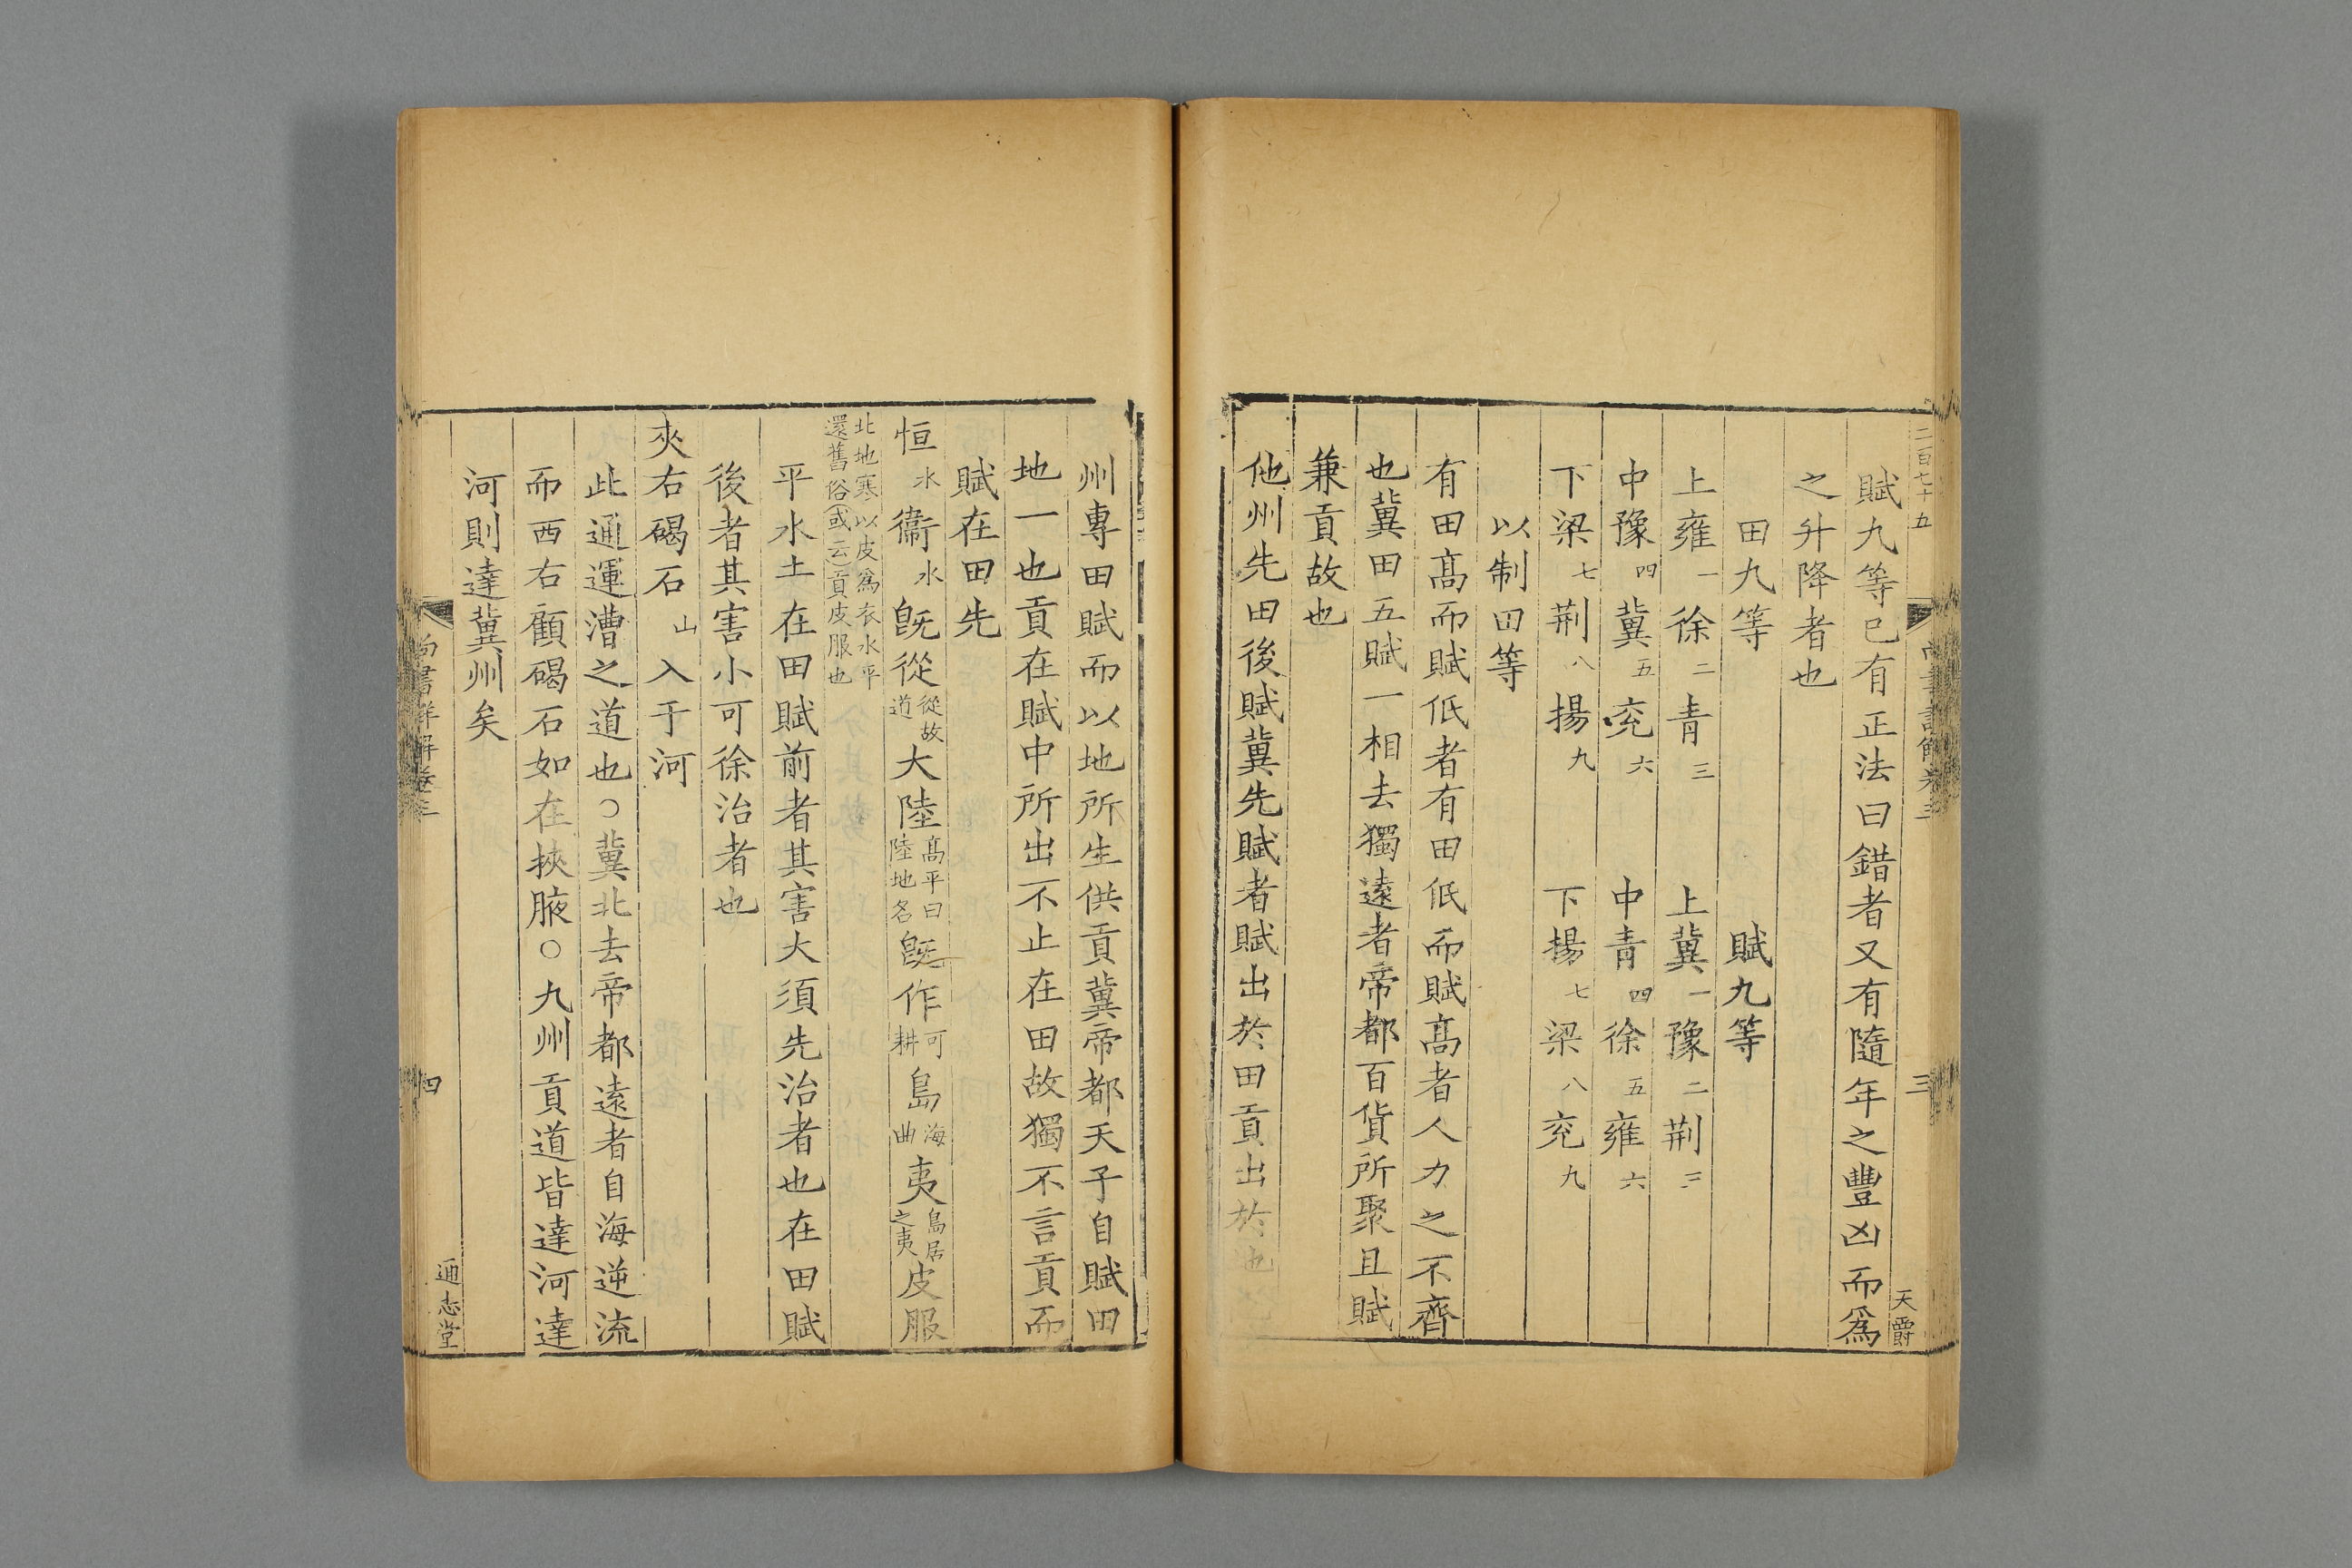 二百七十五
三
天爵
賦九等已有正法曰錯者又有隨年之豐凶而爲
之升降者也
田九等 賦九等
上雍一徐二青三 上冀一豫二荆三
中豫四冀五兖六 中青四徐五雍六
下梁七荆八揚九 下揚七梁八兖九
以制田等
有田髙而賦低者有田低而賦髙者人力之不齊
也冀田五賦一相去獨遠者帝都百貨所聚且賦
兼貢故也
他州先田後賦冀先賦者賦出於田貢出於地
州專田賦而以地所生供貢冀帝都天子自賦田
地一也貢在賦中所出不止在田故獨不言貢而
賦在田先
恒水衞水旣從從故道大陸髙平曰陸地名旣作可耕島海曲夷島居之夷皮服
北地寒以皮爲衣水平還舊俗(或云)貢皮服也
平水土在田賦前者其害大須先治者也在田賦
後者其害小可徐治者也
夾右碣石山入于河
此通運漕之道也○冀北去帝都遠者自海逆流
而西右顧碣石如在挾腋○九州貢道皆達河達
河則達冀州矣
尚書詳解卷三
四
通志堂